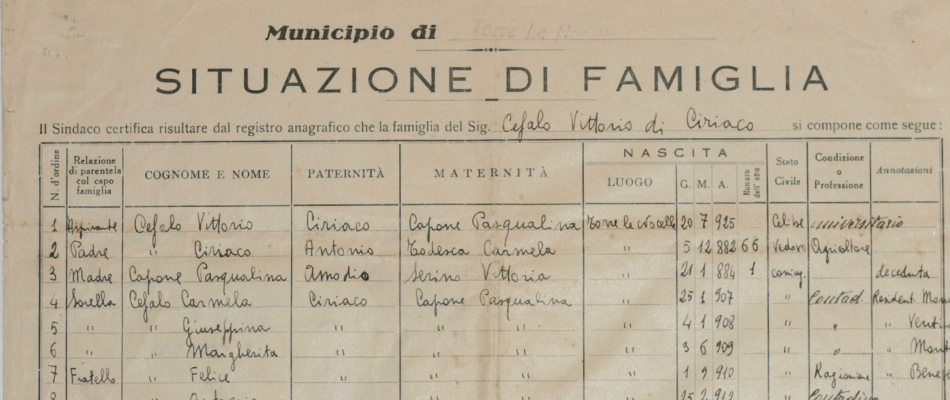 Municipio di Torre Le Nocelle
SITUAZIONE DI FAMIGLIA
Il Sindaco certifica risultare dal registro anagrafico che la famiglia del Sig. Cefalo Vittorio di Ciriaco si compone come segue:
N. d'ordine Relazione di parentela col capo famiglia COGNOME E NOME PATERNITÀ MATERNITÀ NASCITA LUOGO G. M. A. Numero dell'atto Stato Civile Condizione o Professione Annotazioni
1 Aspirante Cefalo Vittorio Ciriaco Capone Pasqualina Torre le Nocelle 20 7 925 Celibe universitario
2 Padre " Ciriaco Antonio Todesca Carmela " 5 12 882 66 Vedovo Agricoltore
3 Madre Capone Pasqualina Amodio Serino Vittoria " 21 1 884 1 coniug. deceduta
4 Sorella Cefalo Carmela Ciriaco Capone Pasqualina " 25 1 907 Contad. Resident.
5 " " Giuseppina " " " 4 1 908 " "
6 " " Margherita " " " 3 6 909 "
7 Fratello " Felice " " " 1 9 910 Ragioniere "
8